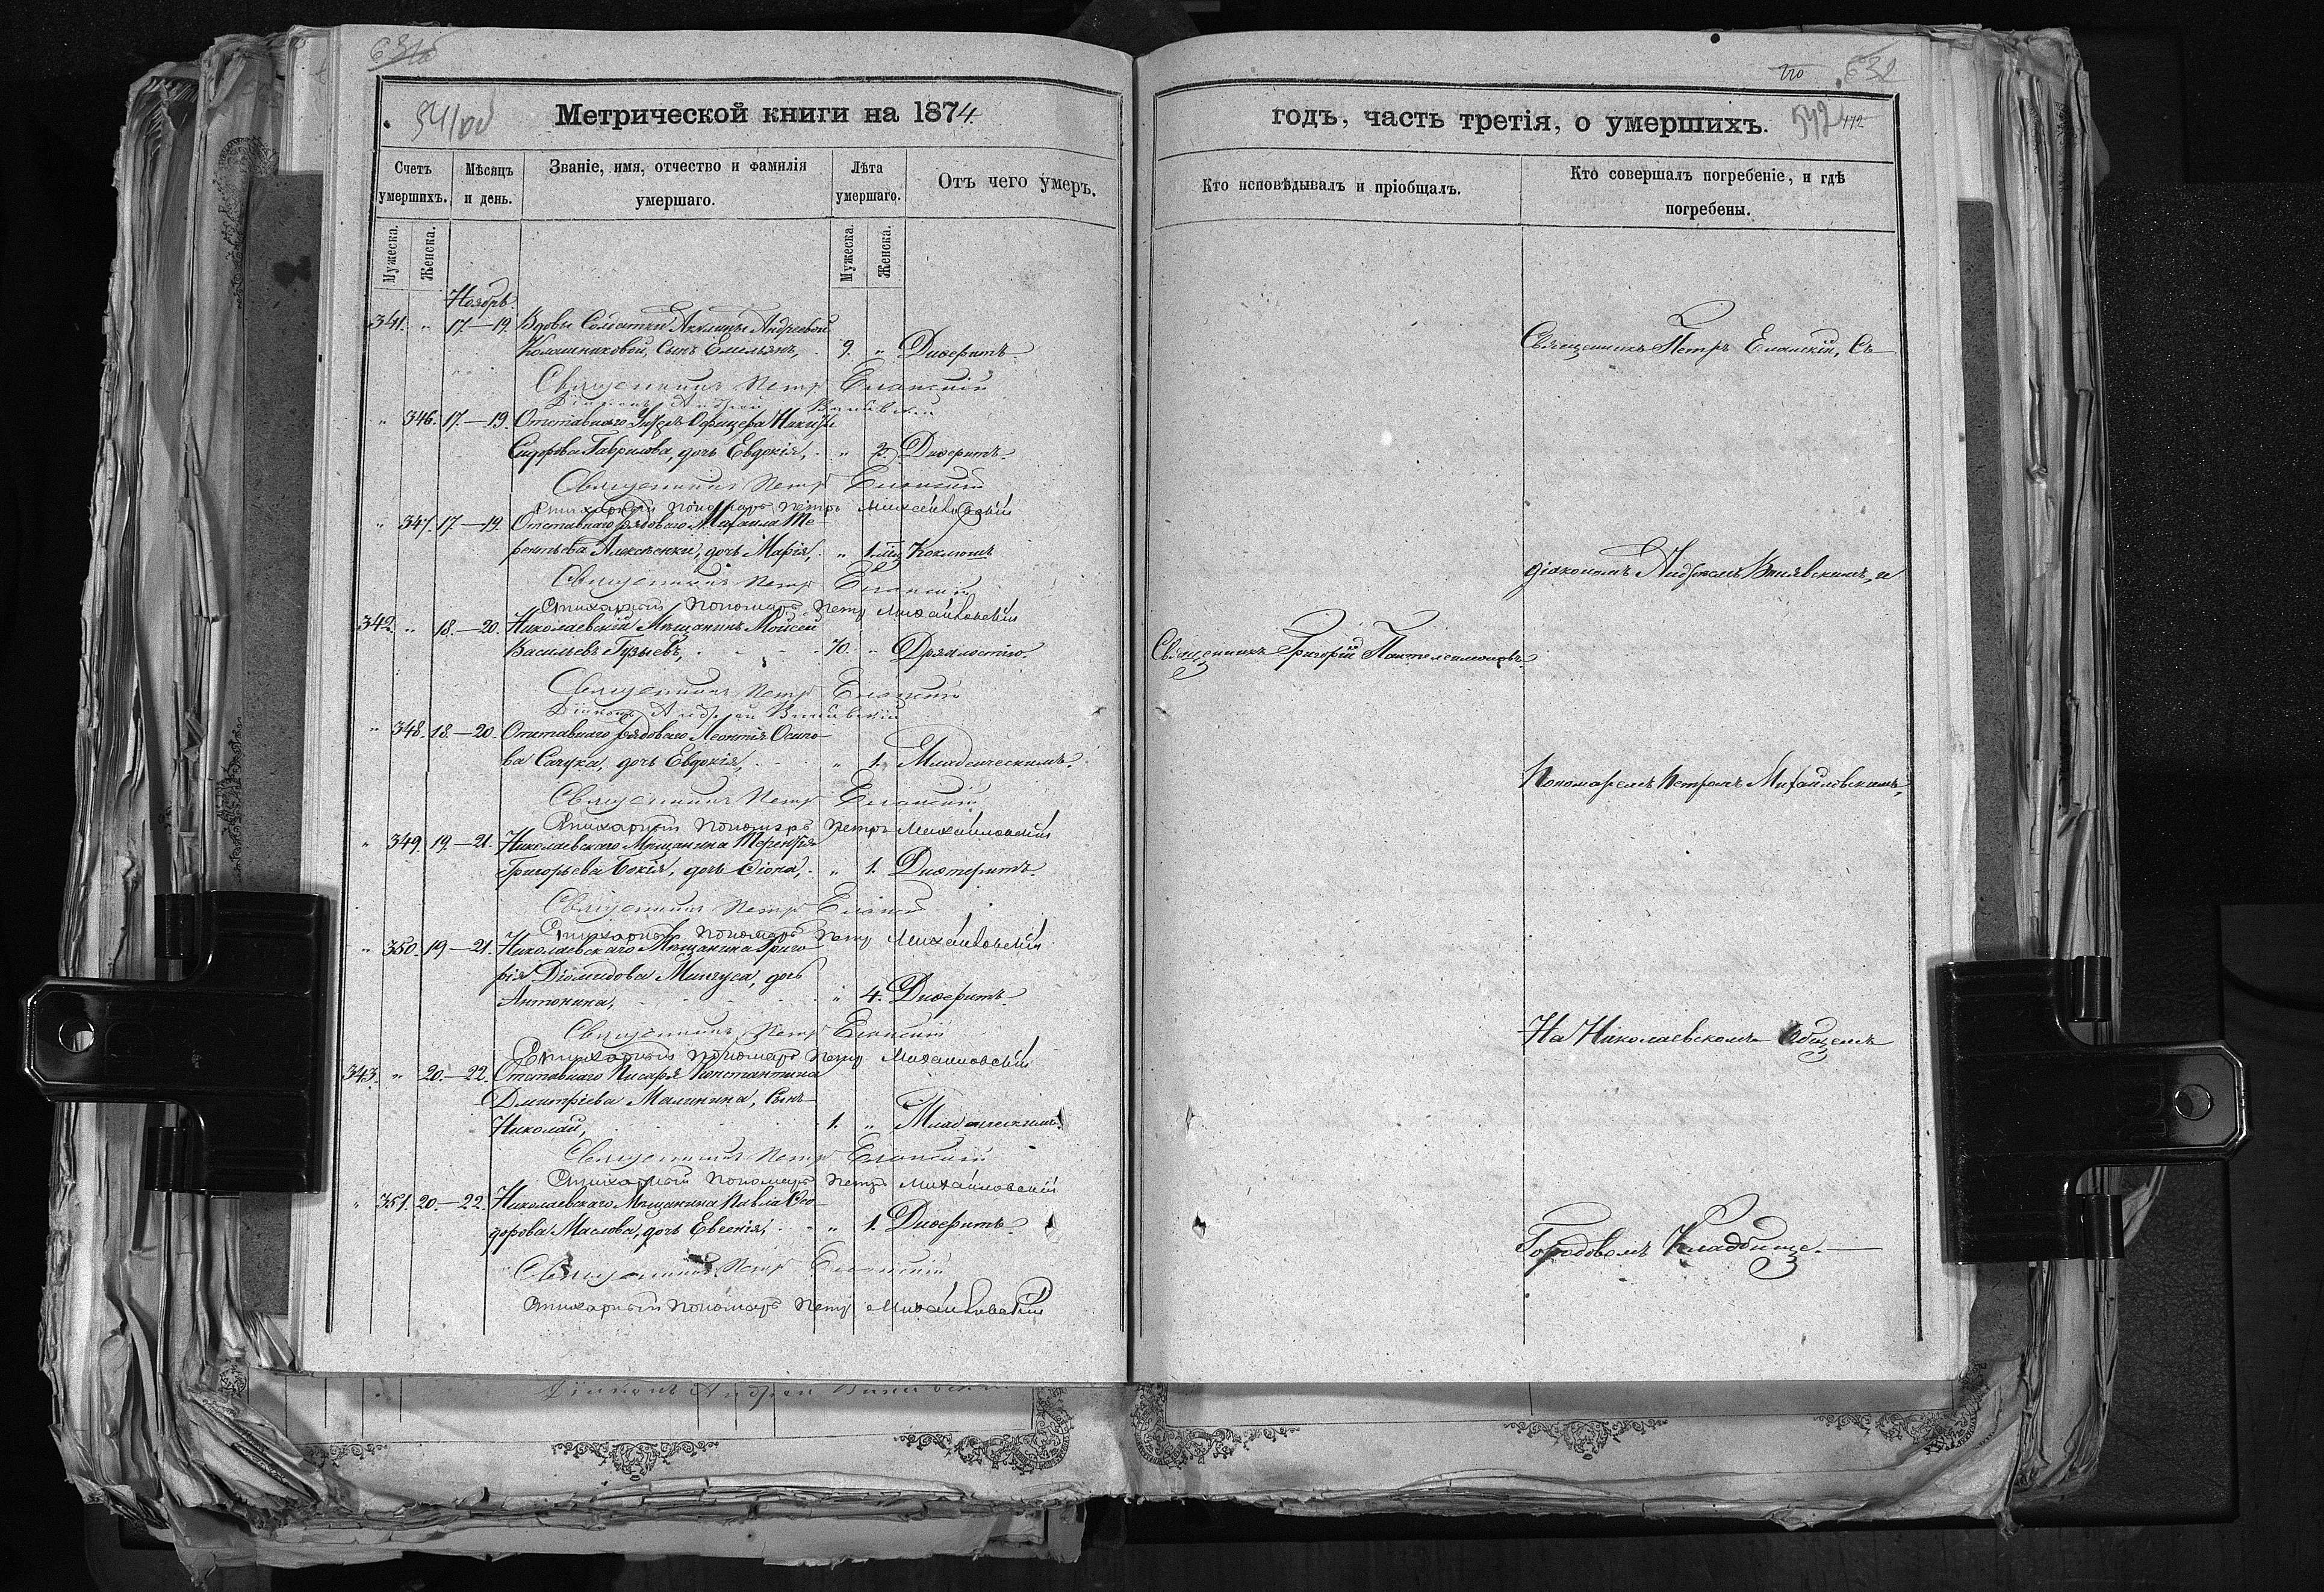 541об
Метрической книги на 1874
Счетъ умершихъ.
Мѣсяцъ и день.
Званіе, имя, отчество и фамилія умершаго.
Лѣта умершаго.
Отъ чего умеръ.
Мужеска.
Женска.
Мужеска.
Женска.
Ноябрь
341. " 17–19. Вдовы Солдатки Акулины Андреевой
Калашниковой, сынъ Емельянъ, 9. " Диѳеритъ.
Священникъ Петръ Еланскій
Діаконъ Андрей
" 346. 17.–19. Отставного Унтеръ Офицера Никиты
Сидорова Гаврилова, дочь Евдокія, " 2. Диѳеритъ.
Священникъ Петръ Еланскій
Стихарный пономарь Петръ Михайловскій
" 347. 17.–19. Отставного рядового Михаила Те-
рентьева Алексѣенки, дочь Марія, " 1.мц Коклюшъ
Священникъ Петръ Еланскій
Стихарный пономарь Петръ Михайловскій
342. " 18.–20. Николаевскій Мѣщанинъ Мойсей
Васильевъ Гузыевъ, 70. " Дряхлостію.
Священникъ Петръ Еланскій
Діаконъ Андрей
" 348. 18.–20. Отставного рядового Леонтія Осипо-
ва Сачука, дочь Евдокія, " 1. Младенческимъ.
Священникъ Петръ Еланскій
Стихарный пономарь Петръ Михайловскій
" 349. 19.–21. Николаевскаго Мѣщанина Терентія
Григорьева Бокія, дочь Ѳіона, " 1. Диѳтеритъ.
Священникъ Петръ Еланск
Стихарный пономарь Петръ Михайловскій
" 350. 19–21. Николаевскаго Мѣщанина Григо-
рія Діомидова Минчуса, дочь
Антонина, " 4. Диѳеритъ.
Священникъ Петръ Еланскій
Стихарный пономарь Петръ Михайловскій
343. " 20.–22. Отставного Писаря Константина
Дмитріева Малинина, Сынъ
Николай, 1. " Младенческимъ.
Священникъ Петръ Еланскій
Стихарный пономарь Петръ Михайловскій
" 351. 20.–22. Николаевскаго Мѣщанина Павла Ѳео-
дорова Маслова, дочь Евгенія, " 1. Диѳеритъ.
Священникъ Петръ Еланскій
Стихарный пономарь Петръ Михайловскій
Діаконъ Андрей
632
годъ, часть третія, о умершихъ.
542
Кто исповѣдывалъ и пріобщалъ.
Кто совершалъ погребеніе, и гдѣ погребены.
Священникъ Петръ Еланскій, съ
діакономъ Андреемъ
Священникъ Григорій Пантелеимоновъ.
Пономаремъ Петромъ Михайловскимъ,
На Николаевскомъ Общемъ
Городовомъ Кладбище.